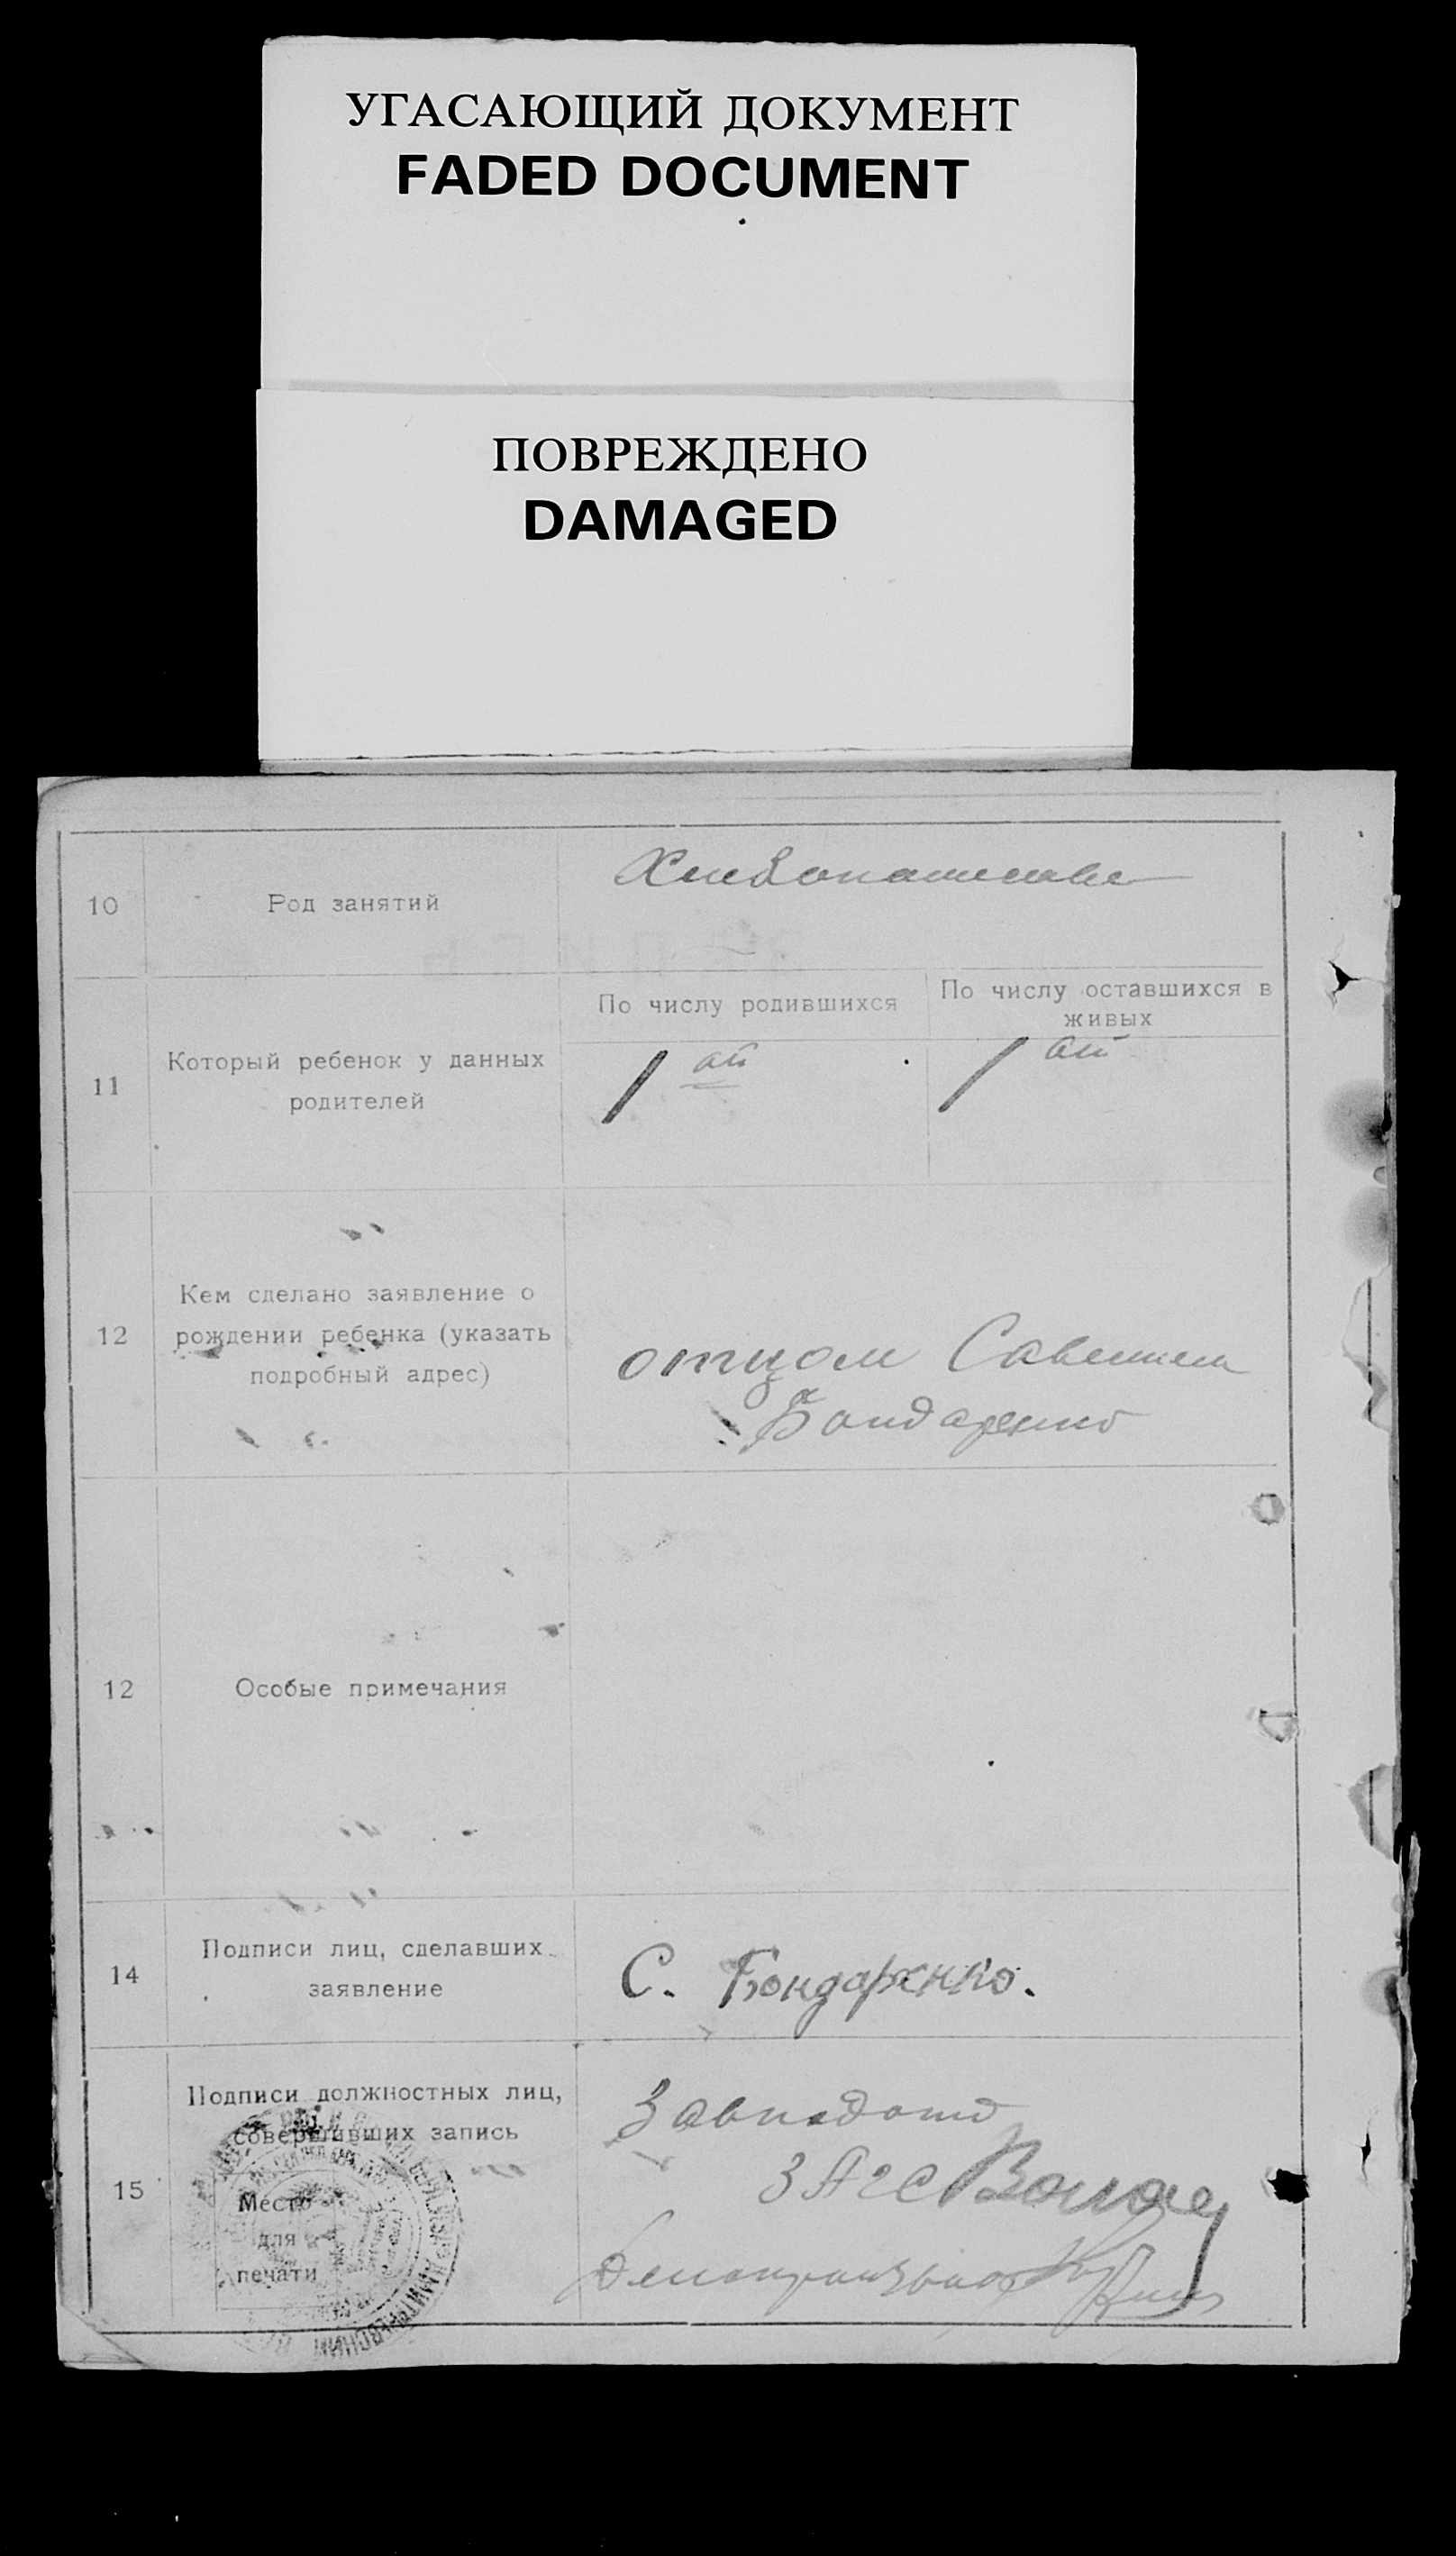 УГАСАЮЩИЙ ДОКУМЕНТ
FADED DOCUMENT
ПОВРЕЖДЕНО
DAMAGED
10
Род занятий
11
Который ребенок у данных
родителей
По числу родившихся
1 ый
По числу оставшихся в
живых
1 ый
12
Кем сделано заявление о
рождении ребенка (указать
подробный адрес)
отцом
Бондаренко
12
Особые примечания
14
Подписи лиц, сделавших
заявление
С. Бондаренко.
15
Подписи должностных лиц,
совершивших запись
Место
для
печати
ЗАГС